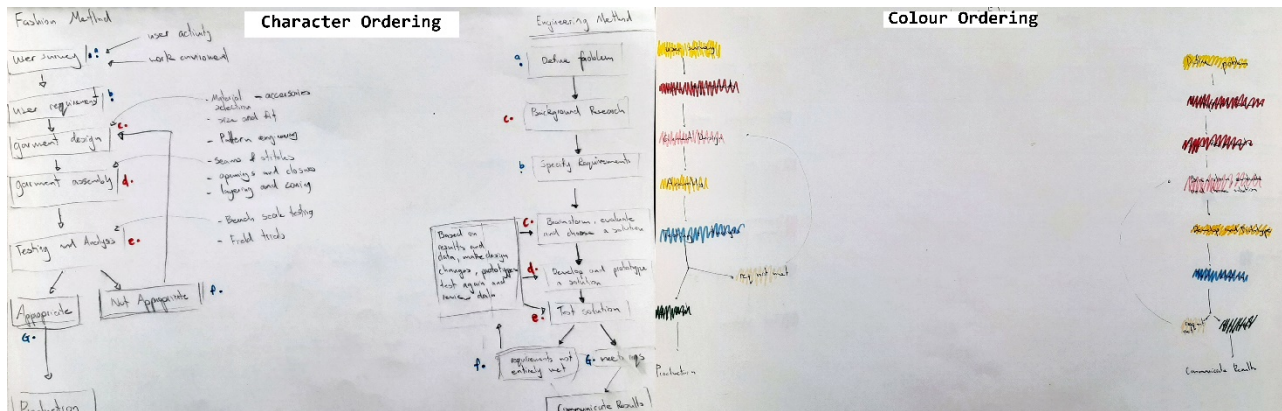 Fashion Method
Character Ordering
Engineering Method
user activity
work enviroment
user survey
a.
user requirment
b.
garment design
c.
garment assembly
d.
Testing and Analysis
e.
Appopriate
G.
Not Appopriate
f.
Production
- Material selection
- accessories
- size and fit
- Pattern enginering
- seams & stitches
- openings and closures
- layering and
- Bench scale testing
- Field trials
a.
Define Problem
c.
Background Research
b.
Specify Requirements
c.
Brainstorm, evaluate
and choose a solution
d.
Develop and prototype
a solution
e.
Test solution
Based on
results and
data, make design
changes, prototype,
test again and
review data
f.
requirements not
entirely met
G.
Communicate Results
Colour Ordering
user survey
req not met
Production
Define problem
Communicate Results